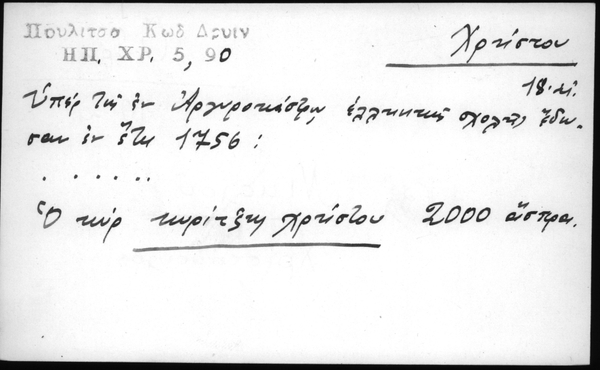 Πουλιτσα Κωδ Δρυιν
ΗΠ. ΧΡ. 5, 90
Χρήστου
18. αἰ.
Ὑπὲρ τῆς ἐν Ἀργυροκάστρῳ ἑλληνικῆς σχολῆς ἔδω-
σαν ἐν ἔτει 1756 :
. . . . .
Ὁ κὺρ κυρίτζης Χρήστου 2000 ἄσπρα.